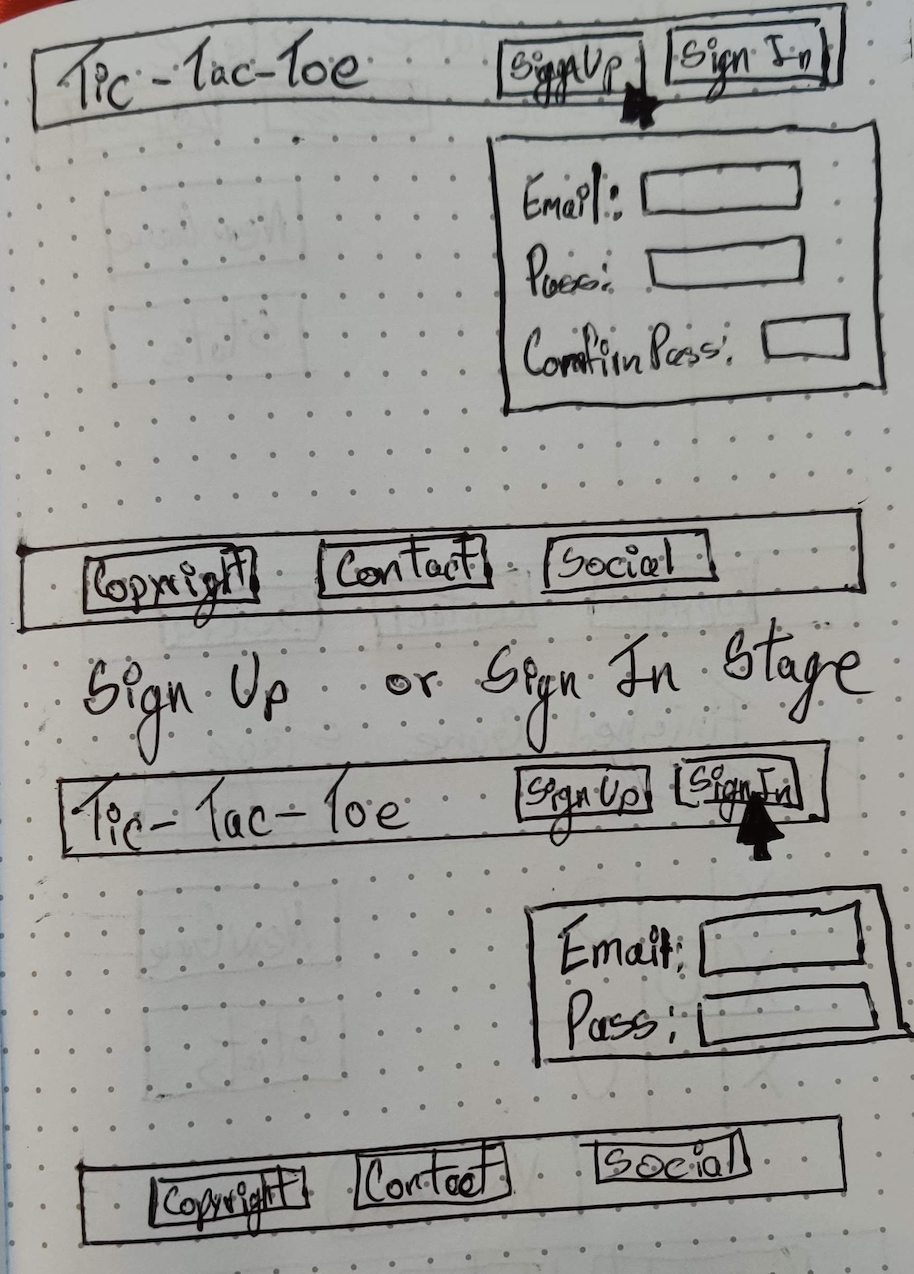 Tic-Tac-Toe Sign Up Sign In
Email:
Pass:
Confirm Pass:
Copyright Contact Social
Sign Up or Sign In Stage
Tic-Tac-Toe Sign Up Sign In
Email:
Pass:
Copyright Contact Social